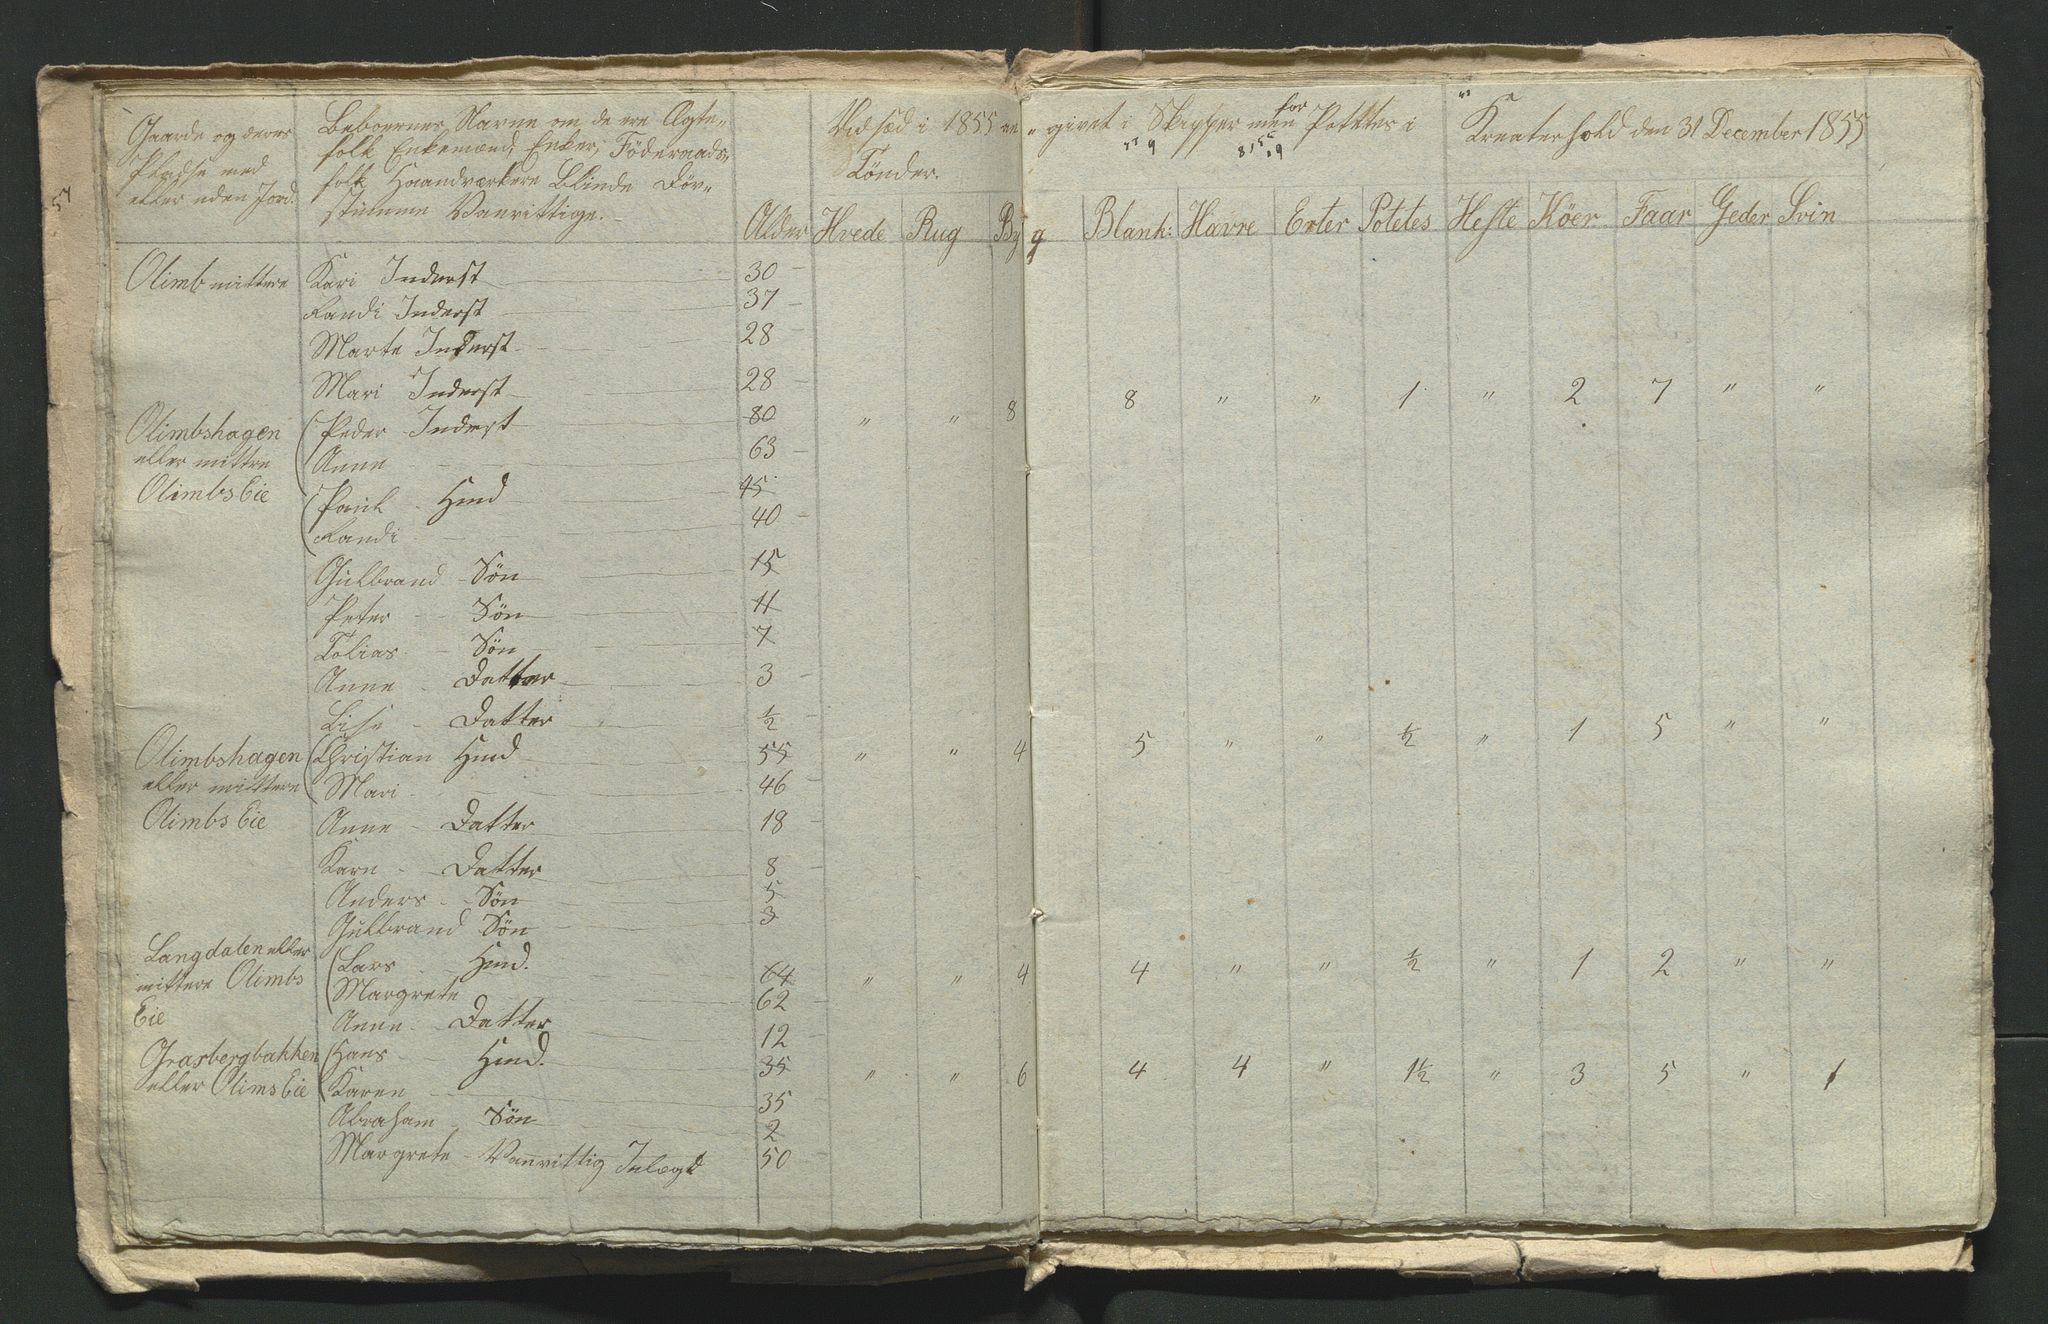 Gaarde og deres
Pladse med
eller uden Jord.
Beboernes Navne om de ere Ægte-
folk Enkemænd, Enker, Föderaads-
folk Haandværkere Blinde Döv-
stumme Vanvittige.
Alder
Udsæd i 1855 an- givet i Skjepper men for Potetes i
Tönder.
Kreaturhold den 31 December 1855
Hvede Rug Byg Blank: Havre Erter Potetes Heste Köer Faar Geder Svin
57
Olimb mittere Kari Inderst 30
Randi Inderst 37
Marte Inderst 28
Mari Inderst 28
Olimbshagen Peder Inderst 80 " " 8 8 " " 1 " 2 7 " "
eller mittre Anne 63
Olimbs Eie Paul Hmd 45
Randi 40
Gulbrand Sön 15
Peter Sön 11
Tobias Sön 7
Anne Datter 3
Lise Datter ½
Olimbshagen Christian Hmd 55 " " 4 5 " " ½ " 1 5 " "
eller mittere Mari 46
Olimbs Eie Anne Datter 18
Karn Datter 8
Anders Sön 5
Gulbrand Sön 3
Langdalen eller Lars Hmd. 64 " " 4 4 " " ½ " 1 2 " "
mittere Olimbs Margrete 62
Eie Anne Datter 12
Grasbergbakken Hans Hmd. 35 " " 6 4 4 " 1½ " 3 5 " 1
eller Olims Eie Karen 35
Abraham Sön 2
Margrete Vanvittig Inlægd 50